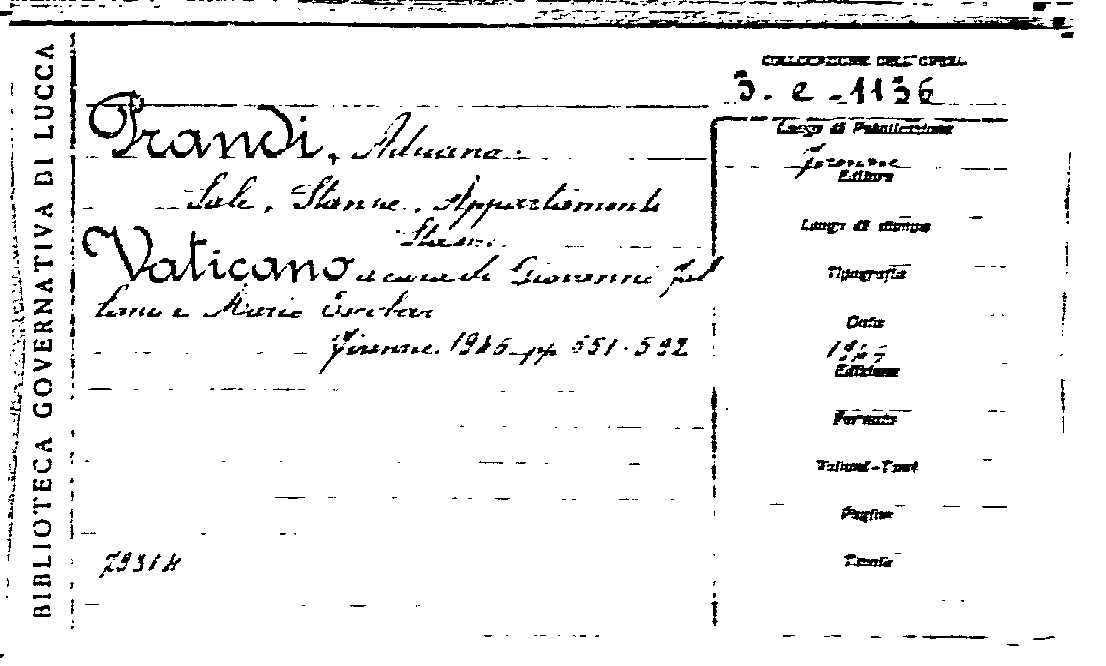 BIBLIOTECA GOVERNATIVA DI LUCCA
COLLOCAZIONE DELL'OPERA
3. e - 1136
Prandi, Adriano.
Sale, Stanze, Appartamenti
Vaticano a cura di Giovanni Fal
lani e Mario Escobar
Firenze. 1946 pp 551-592
Luogo di Pubblicazione
Firenze
Editore
Luogo di stampa
Tipografia
Data
Edizione
Formato
Volumi-Tomi
Pagine
Tavole